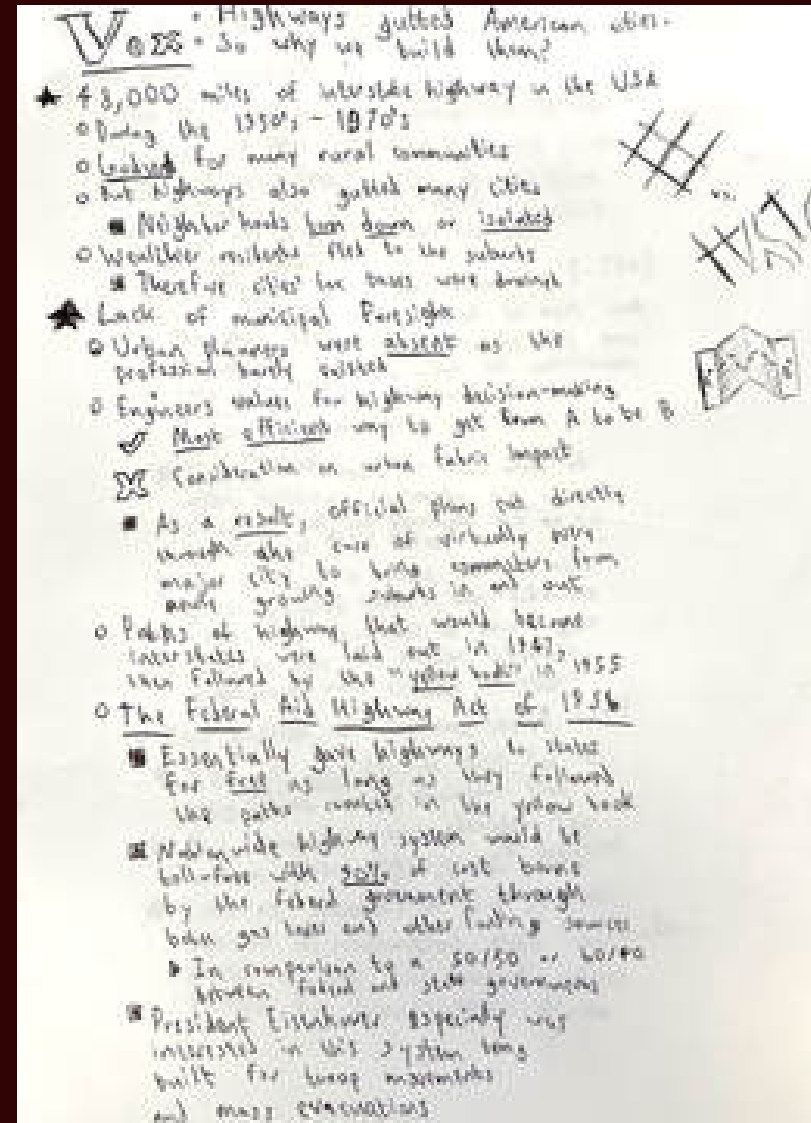 Vox • Highways gutted American cities.
• So why we build them?
★ 48,000 miles of interstate highway in the USA
○ During the 1950's - 1970's
○ for many rural communities
○ But highways also gutted many cities
■ Neighborhoods torn down or isolated
○ Wealthier residents fled to the suburbs
■ Therefore cities' tax bases were drained
vs.
★ Lack of municipal foresight
○ Urban planners were absent as the
profession barely existed
○ Engineers values for highway decision-making
✓ Most efficient way to get from A to be B
☒ Consideration on urban fabric impact
■ As a result, official plans cut directly
through the core of virtually every
major city to bring commuters from
growing suburbs in and out
○ Paths of highway that would become
interstates were laid out in 1947,
then followed by the "yellow book" in 1955
○ The Federal Aid Highway Act of 1956
■ Essentially gave highways to states
for free as long as they followed
the paths in the yellow book
■ Nationwide highway system would be
toll-free with 90% of cost borne
by the federal government through
gas taxes and other funding sources
▶ In comparison to a 50/50 or 60/40
between federal and state governments
■ President Eisenhower especialy was
interested in this system being
built for troop movements
and mass evacuations